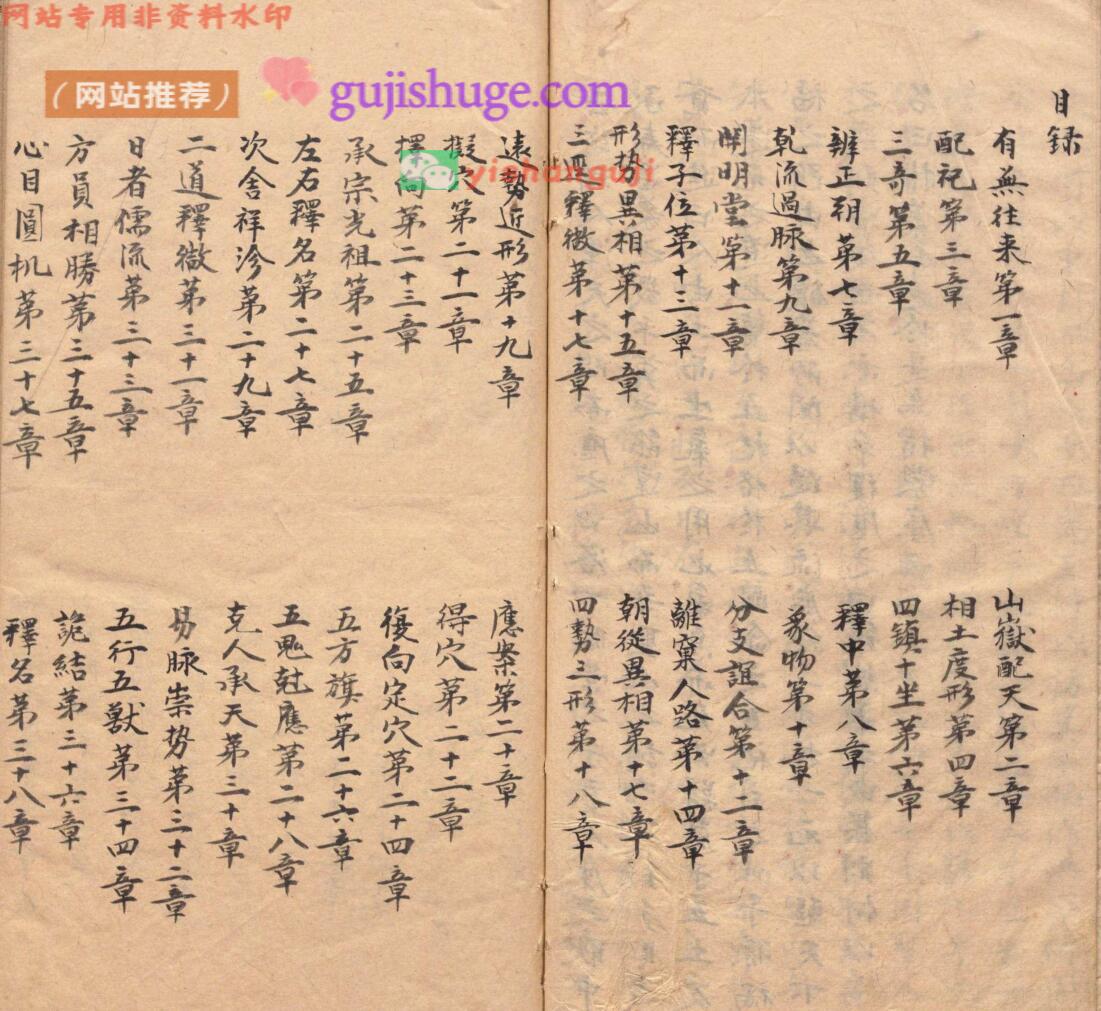 网站专用非资料水印
(网站推荐)
gujishuge.com
yishanguji
目録
有無往来第一章
山嶽配天第二章
配祀第三章
相土度形第四章
三奇第五章
四鎮十坐第六章
辨正朝第七章
釋中第八章
乾流過脉第九章
象物第十章
開明堂第十一章
分支誼合第十二章
釋子位第十三章
離窠入路第十四章
形势異相第十五章
朝從異相第十七章
三徑釋微第十七章
四勢三形第十八章
遠勢近形第十九章
應案第二十章
擬穴第二十一章
得穴第二十二章
擇向第二十三章
復向定穴第二十四章
承宗光祖第二十五章
五方旗第二十六章
左右釋名第二十七章
五鬼尅應第二十八章
次舍祥沴第二十九章
克人承天第三十章
二道釋微第三十一章
易脉崇势第三十二章
日者儒流第三十三章
五行五獸第三十四章
方員相勝第三十五章
詭結第三十六章
心目圓机第三十七章
釋名第三十八章